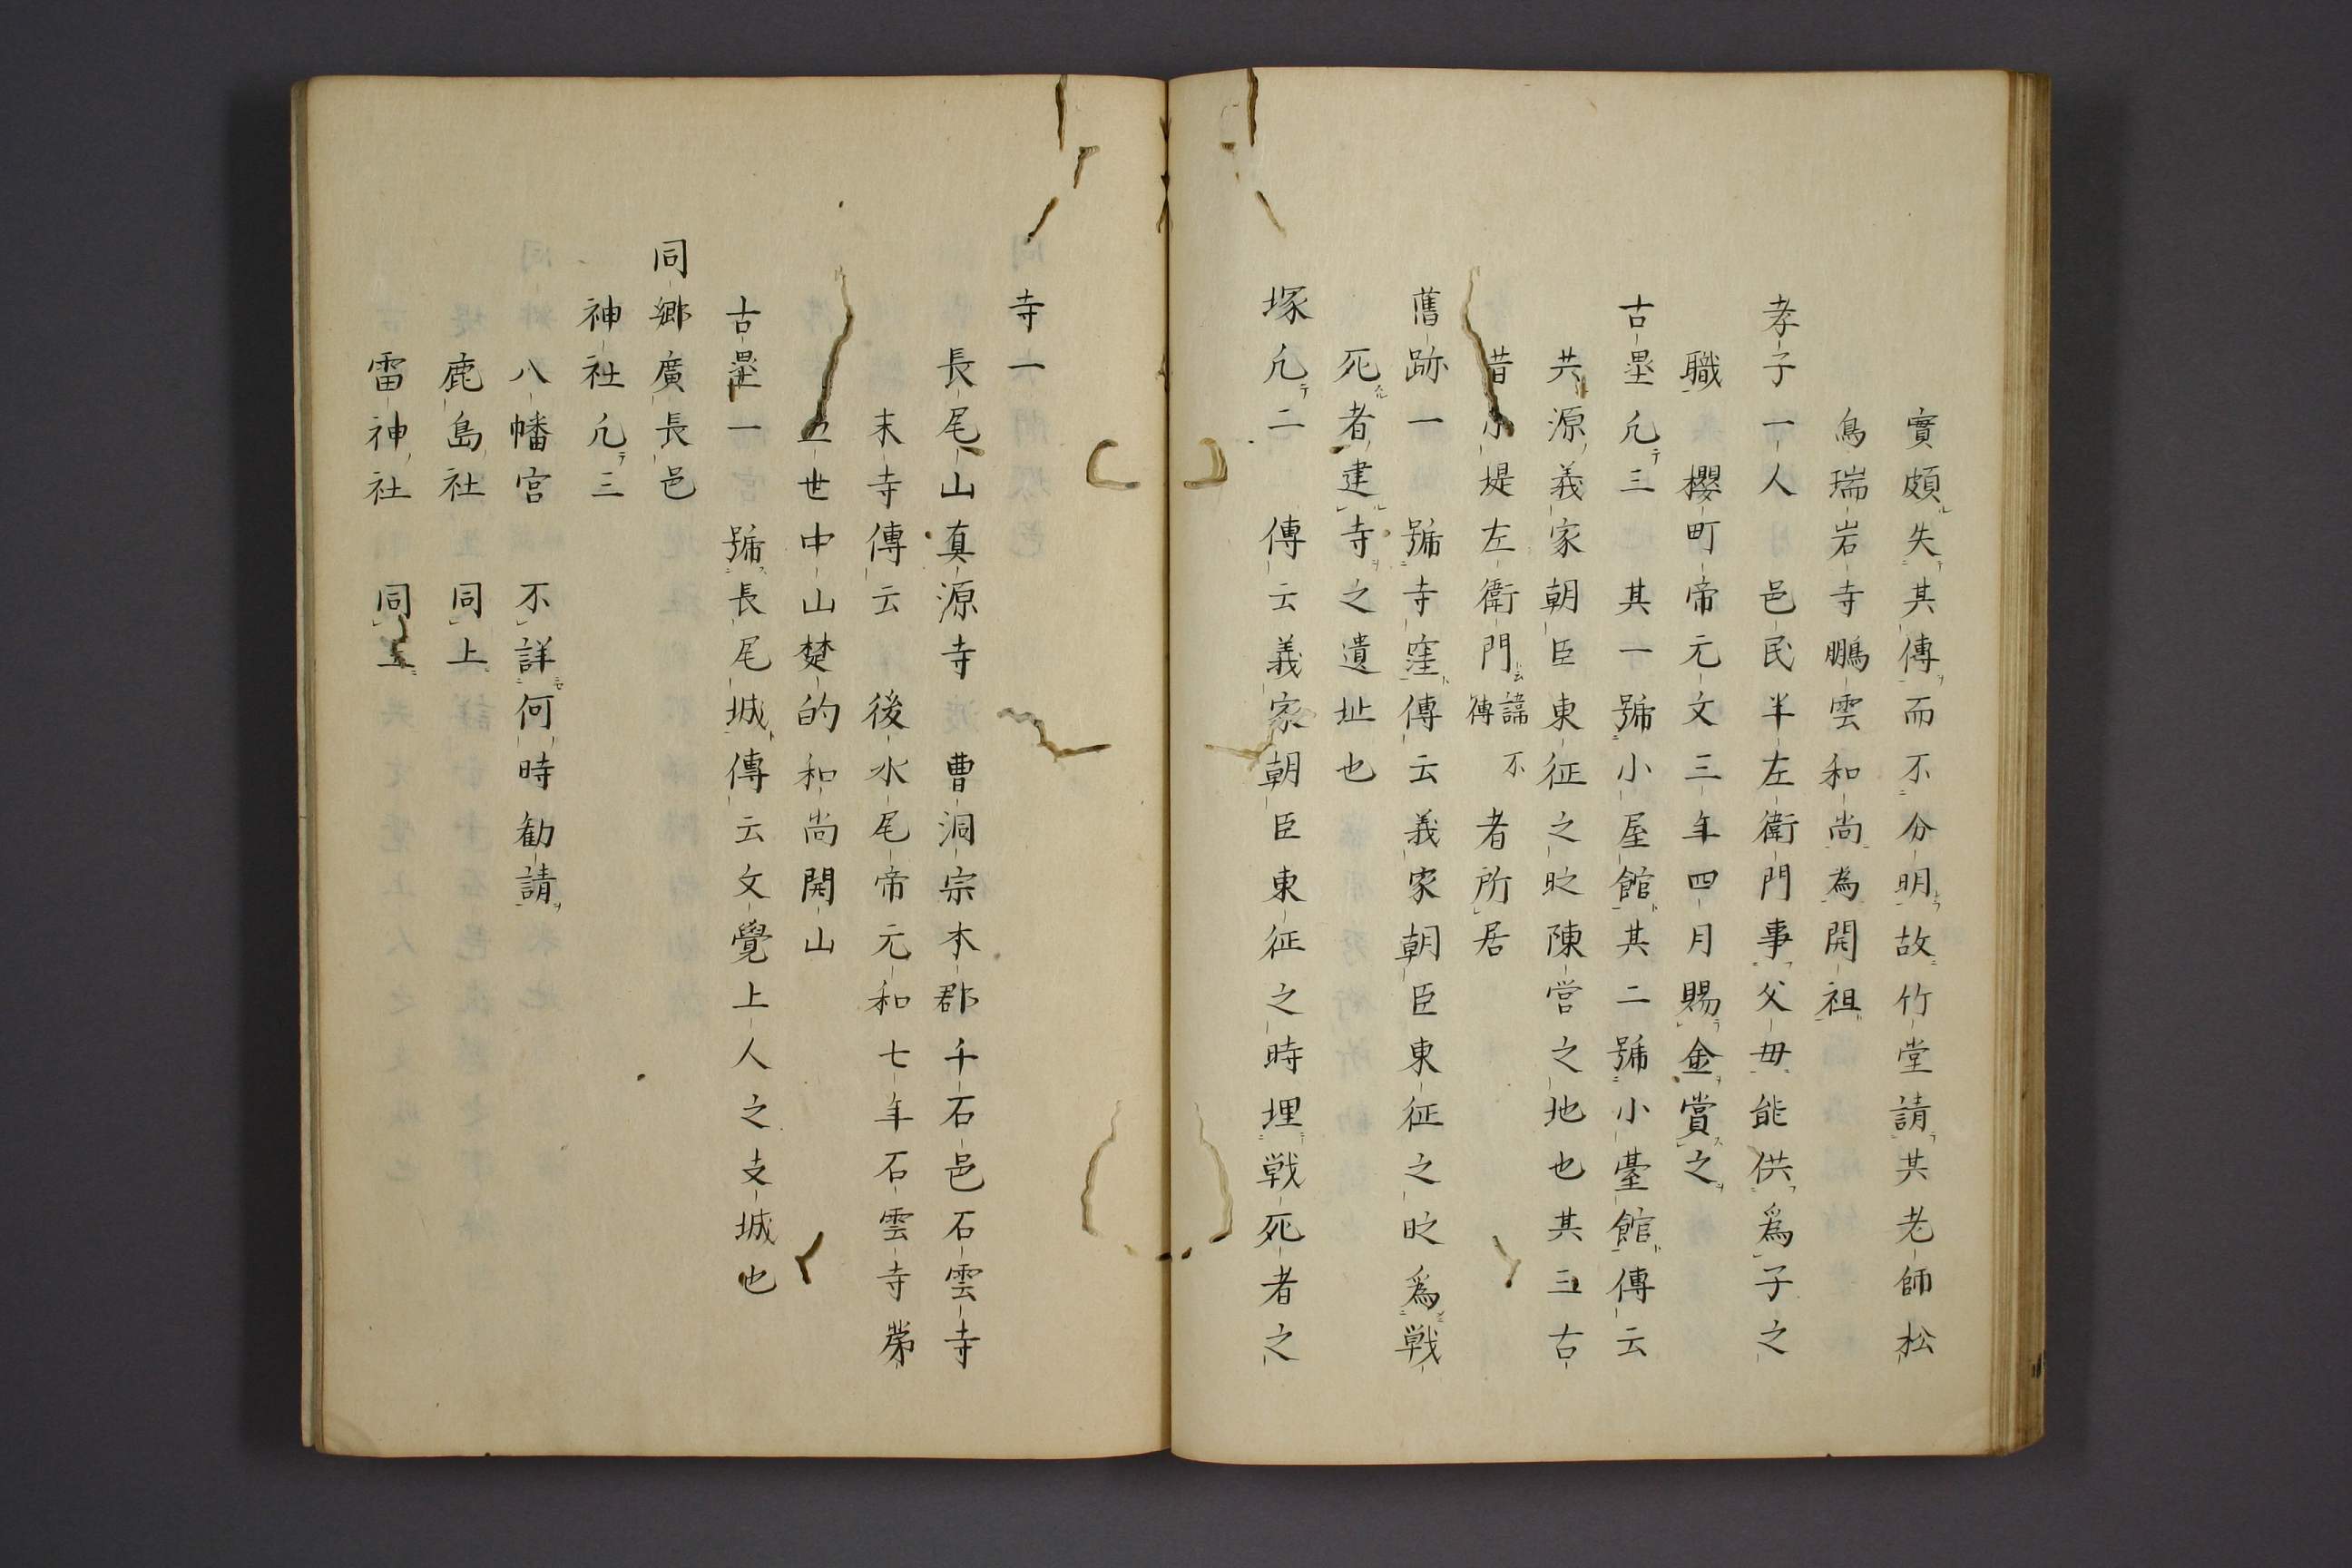 實頗失其傳而不分明故竹堂請其老師松
島瑞岩寺鵬雲和尚為開祖
孝子一人　邑民半左衛門事父母能供爲子之
職　櫻町帝元文三年四月賜金賞之
古壘凢三　其一號小屋館其二號小臺館傳云
共源義家朝臣東征之時陳営之地也其三古
昔小堤左衛門諱不傳者所居
舊跡一　號寺窪傳云義家朝臣東征之時爲戦
死者建寺之遺址也
塚凢二　傳云義家朝臣東征之時埋戦死者之
寺一
長尾山真源寺　曹洞宗本郡千石邑石雲寺
末寺傳云　後水尾帝元和七年石雲寺第
五世中山楚的和尚開山
古壘一　號長尾城傳云文覺上人之支城也
同郷廣長邑
神社凢三
八幡宮　不詳何時勧請
鹿島社　同上
雷神社　同上